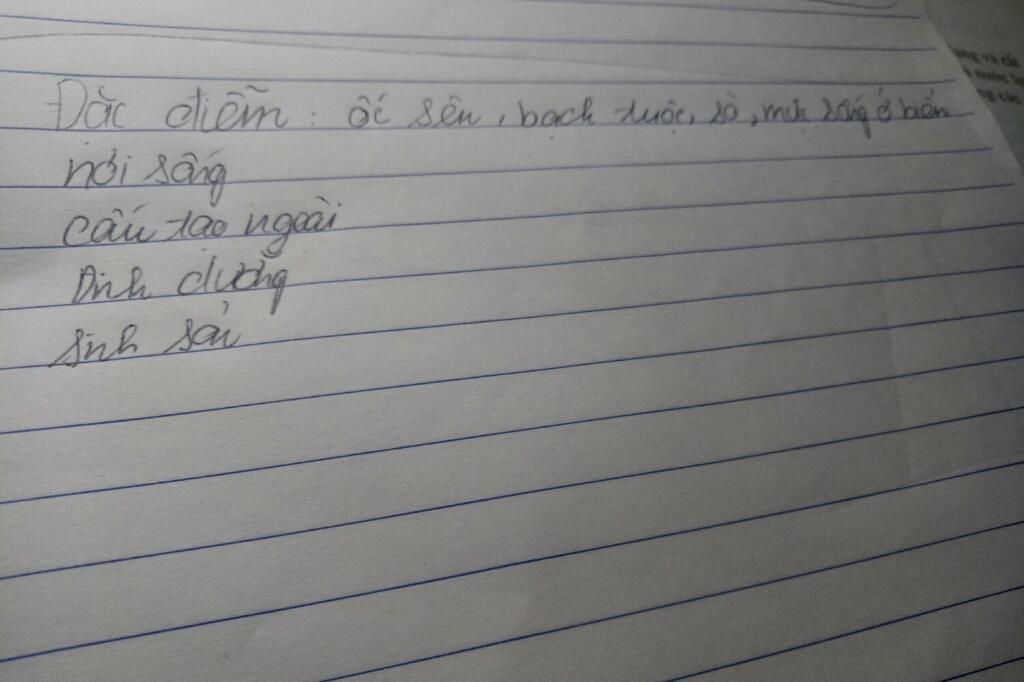 Đặc điểm: ốc sên, bạch tuộc, sò, mực sống ở biển
nơi sống
cấu tạo ngoài
Dinh dưỡng
sinh sản